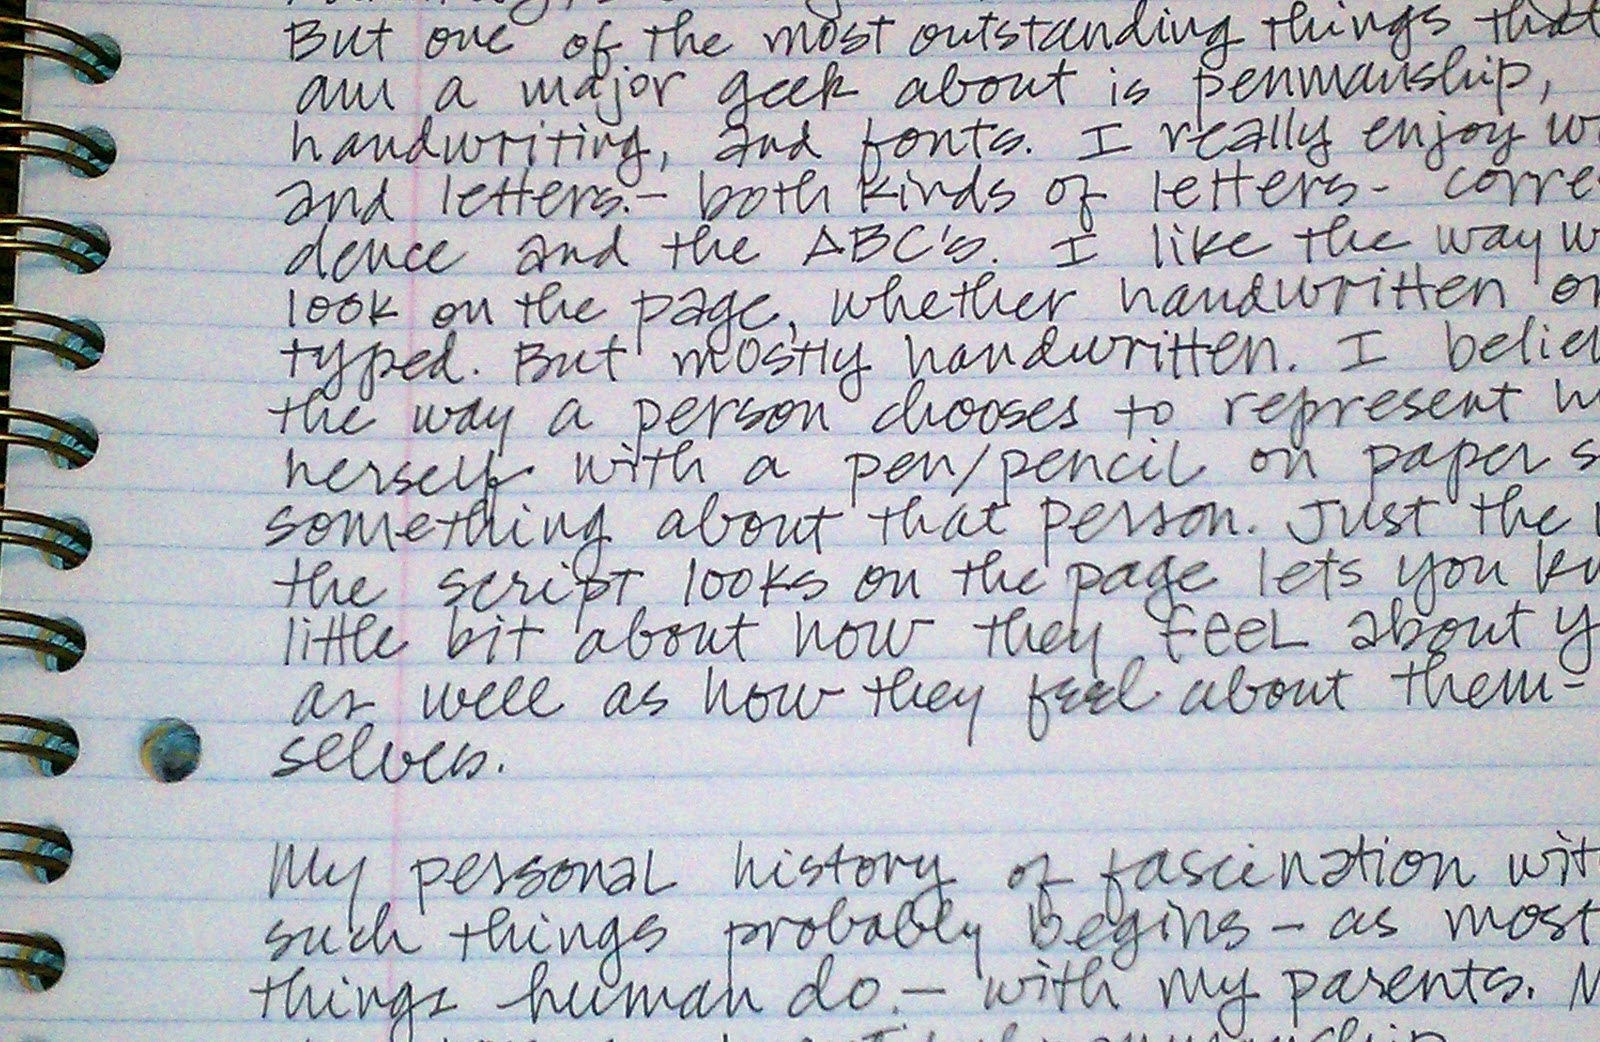 But one of the most outstanding things that
am a major geek about is penmanship,
handwriting, and fonts. I really enjoy
and letters.- both kinds of letters- corre
dence and the ABC's. I like the way w
look on the page, whether handwritten or
typed. But mostly handwritten. I belie
the way a person chooses to represent
herself with a pen/pencil on paper s
something about that person. Just the
the script looks on the page lets you
little bit about how they FEEL about y
as well as how they feel about them-
selves.
My personal history of fascination wit
such things probably begins - as most
things human do. - with my parents.